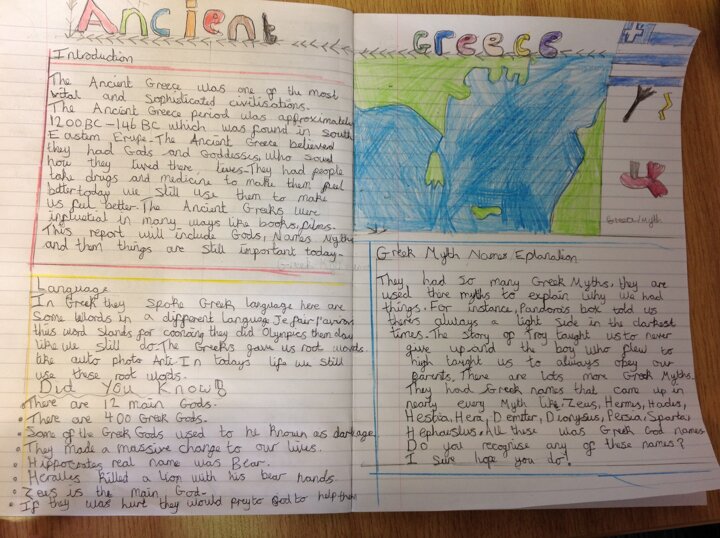 Ancient Greece
Introduction
The Ancient Greece was one of the most
vital and sophisticated civilisations.
The Ancient Greece period was approximately
1200BC-146BC which was found in South
Eastern Erupe. The Ancient Greece believed
they had Gods and Goddesses, who
how they lived there lives. They had people
take drugs and medicine to make them feel
better today we still use them to make
us feel better. The Ancient Greeks were
influential in many ways like books, films.
This report will include Gods, Names Myths
and them things are still important today.
Language
In Greek they spoke Greek language here are
Some words in a different language Je fair
this word stands for they did Olympics them days
like we still do. The Greeks gave us root words
like auto photo Anti. In todays life we still
use these root words.
Did You Know!
There are 12 main Gods.
There are 400 Greek Gods.
Some of the Greek Gods used to be known as
They made a massive change to our lives.
Hippocrates real name was Bear.
Heralles killed a lion with his bear hands.
Zeus is the main God.
If they was hurt they would prey to God to help them
Greece/Myth
Greek Myth Names Eplanation
They had So many Greek Myths, they are
used there myths to explain why we had
things. For instance, Pandora's box told us
there's always a light side in the darkest
times. The Story of Troy taught us to never
give up and the boy who flew to
high taught us to always obey our
parents. There are lots more Greek Myths.
They had Greek names that came up in
nearly every Myth like: Zeus, Hermes, Hades,
Hestia, Hera, Demiter, Dionysus, Persia, Sparta,
Hephaestus. All these was Greek God names
Do you recognise any of these names?
I sure hope you do!